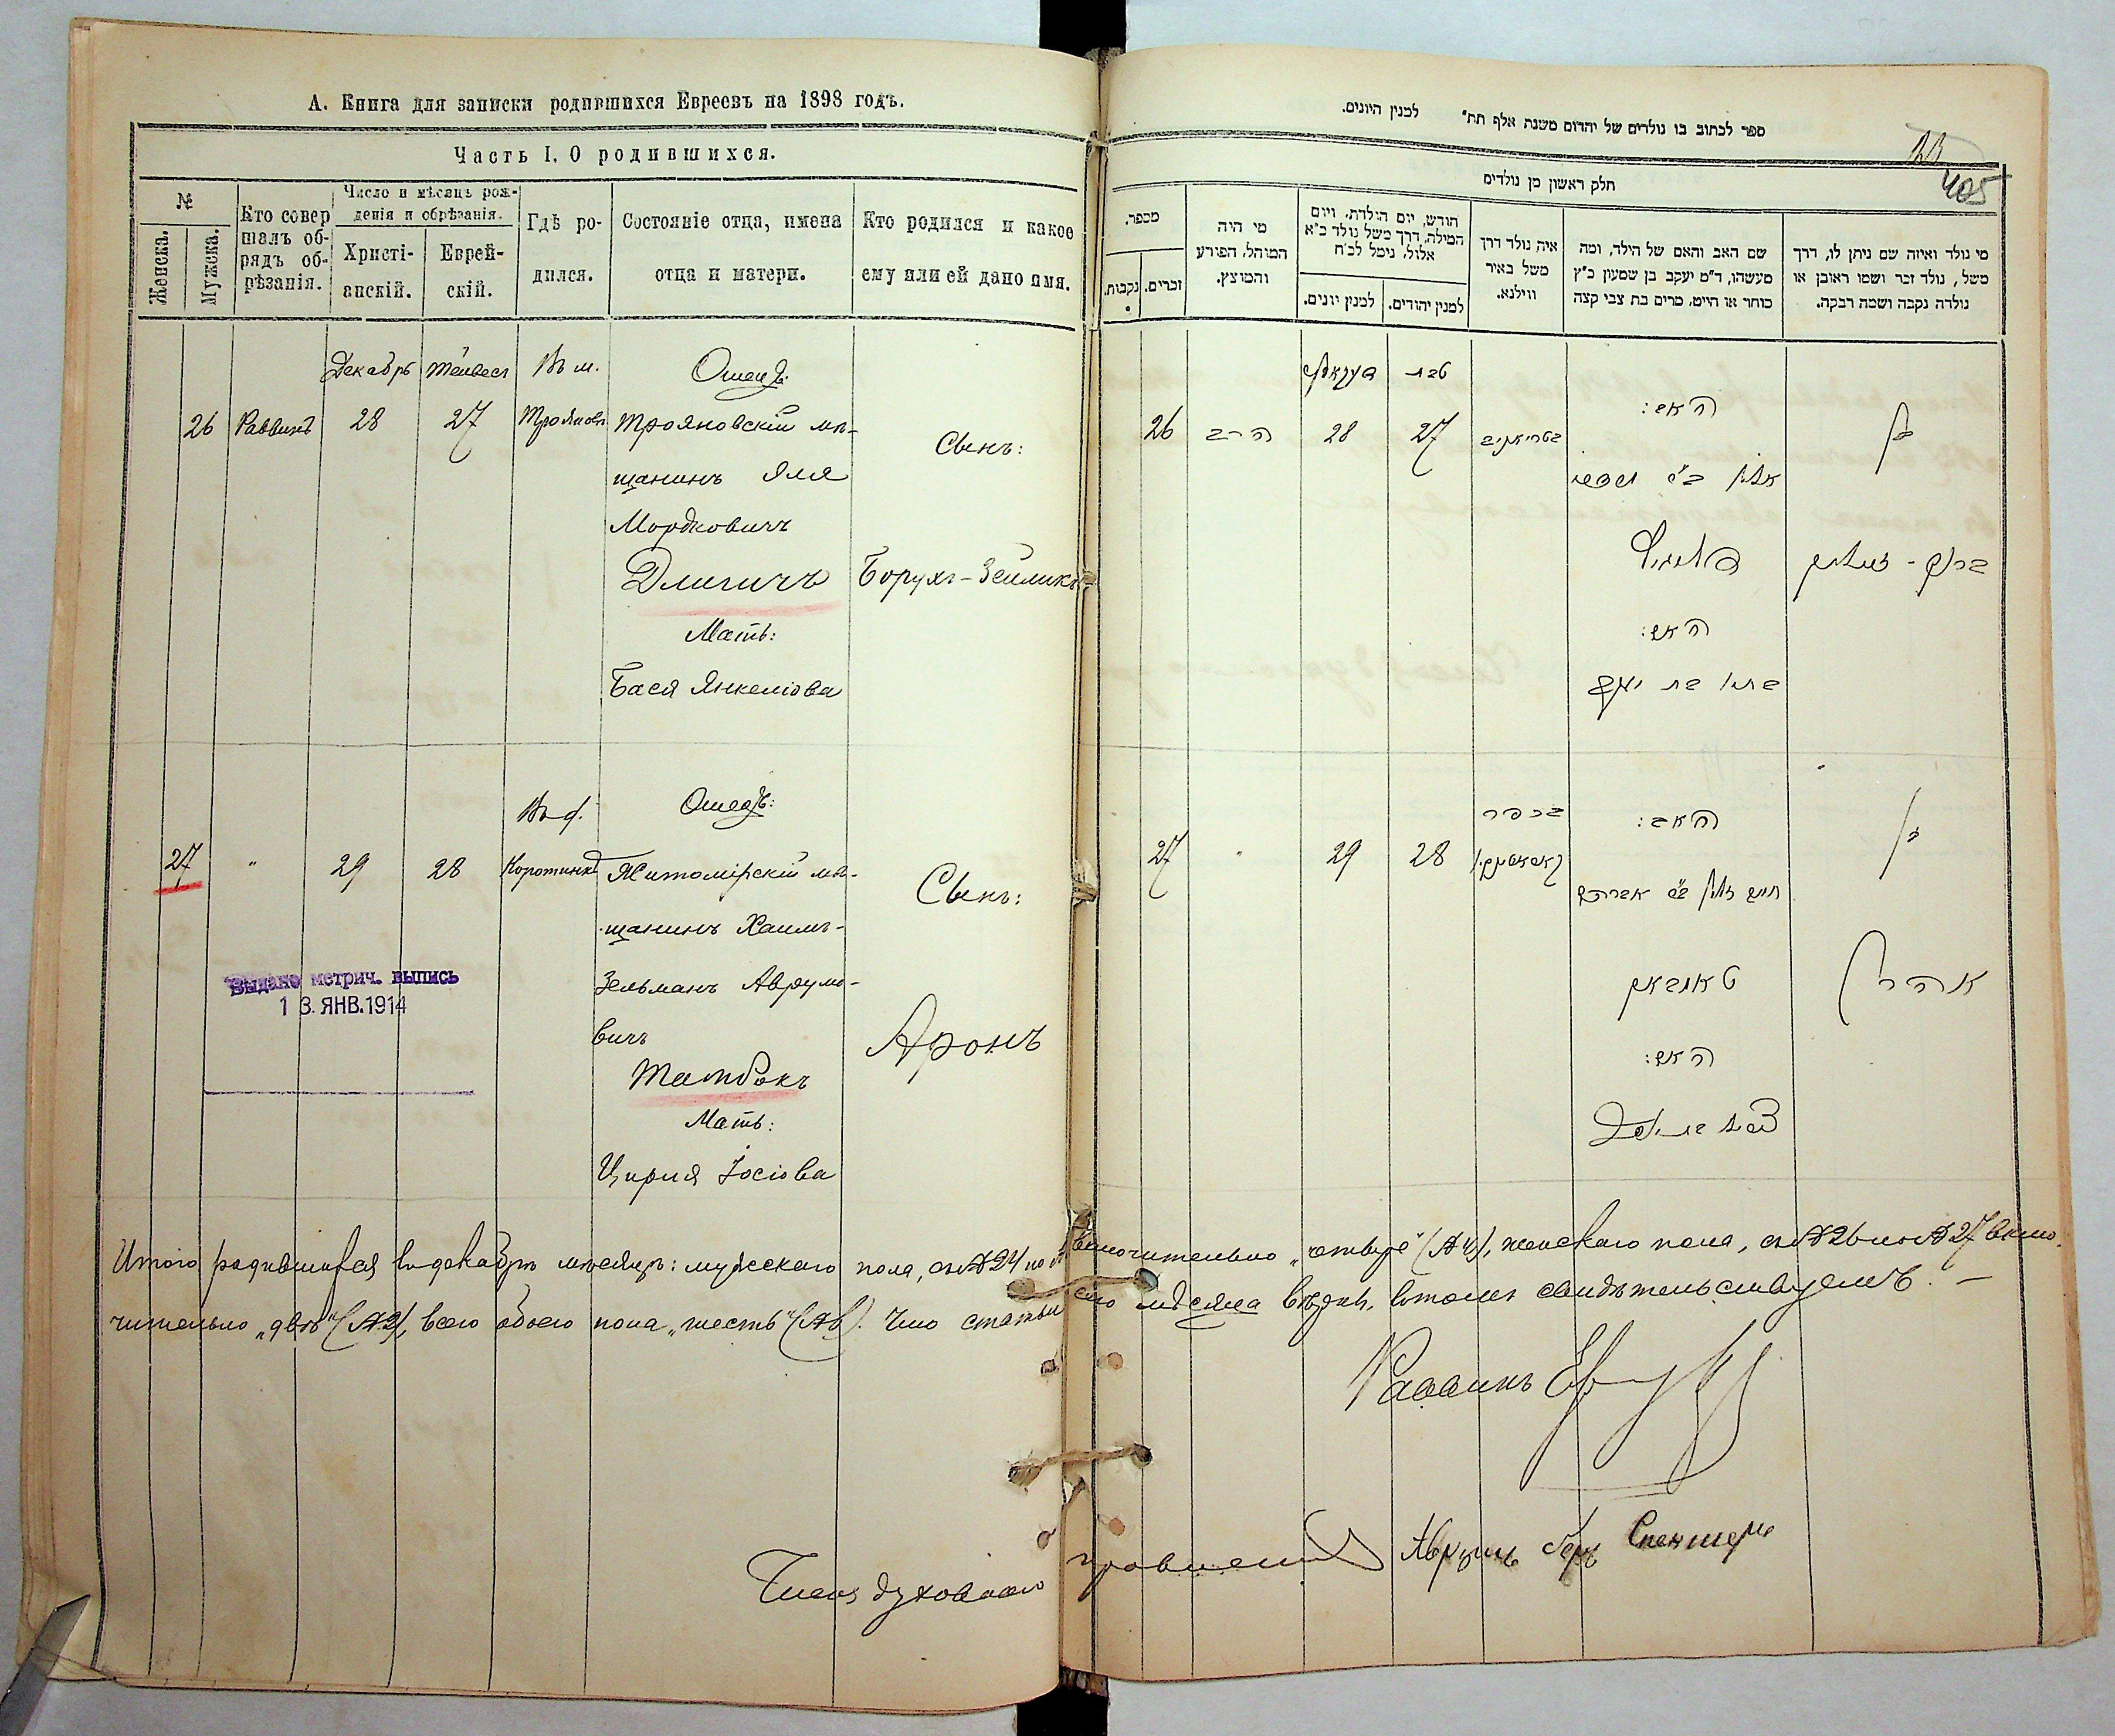 А. Книга для записки родившихся Евреевъ на 1898 годъ.
Часть I. О родившихся.
№
Женска.
Мужеска.
Кто совер
шалъ об-
рядъ об-
рѣзанія.
Число и мѣсяцъ рож-
денія и обрѣзанія.
Христі-
анскій.
Еврей-
скій.
Гдѣ ро-
дился.
Состояніе отца, имена
отца и матери.
Кто родился и какое
ему или ей дано имя.
Декабрь
Тейвесъ
Въ м.
Отецъ:
26
Раввинъ
28
27
Трояновѣ
Трояновскій мѣ-
щанинъ Эля
Мордковичъ
Длигичъ
Мать:
Бася Янкеліова
Сынъ:
Борухъ-Зейликъ
Въ д.
Отецъ:
27
"
29
28
Коротинкѣ
Житомірскій мѣ-
щанинъ Хаимъ-
Зельманъ Аврумо-
вичъ
Татбокъ
Мать:
Ципря Іосіова
Сынъ:
Аронъ
Выдано метрич. выпись
13. ЯНВ. 1914
ספר לכתוב בו נולדים של יהדים משנת אלף תת" לבנין היונים.
405
חלק ראשון מן נולדים
מספר.
נקבות.
זכרים.
מי היה
המוהל, הפורע
והמוצץ.
חודש, יום הולדת, ויום
המילה, דרך משל נולד כ"א
אלול, נימל לכ"ח
למנין יונים.
למנין יהודים.
איה נולד דרך
משל באיר
ווילנא.
שם האב והאם של הילד, ומה
מעשהו, ד"מ יעקב בן שמעון כ"ץ
סוחר או חייט, מרים בת צבי קצה
מי נולד ואיזה שם ניתן לו, דרך
משל, נולד זכר ושמו ראובן או
נולדה נקבה ושמה רבקה.
טבת
26
הרב
28
27
האב:
בן
האם:
ברוך - זעליק
27
"
29
28
בכפר
האב:
חיים זלמן ב"ר אברהם
טאטבאק
האם:
בן
אהרן
Итого родившихся въ декабрѣ мѣсяцѣ: мужескаго пола, съ №24 по
включительно „четыре" (№4), женскаго пола, съ №26 по №27 вклю-
чительно „двѣ" (№2), всего обоего пола „шесть" (№6). Что статьи
сего мѣсяца вѣрны, въ томъ свидѣтельствуемъ. –
Раввинъ
Членъ духовнаго правленія Аврумъ Беръ